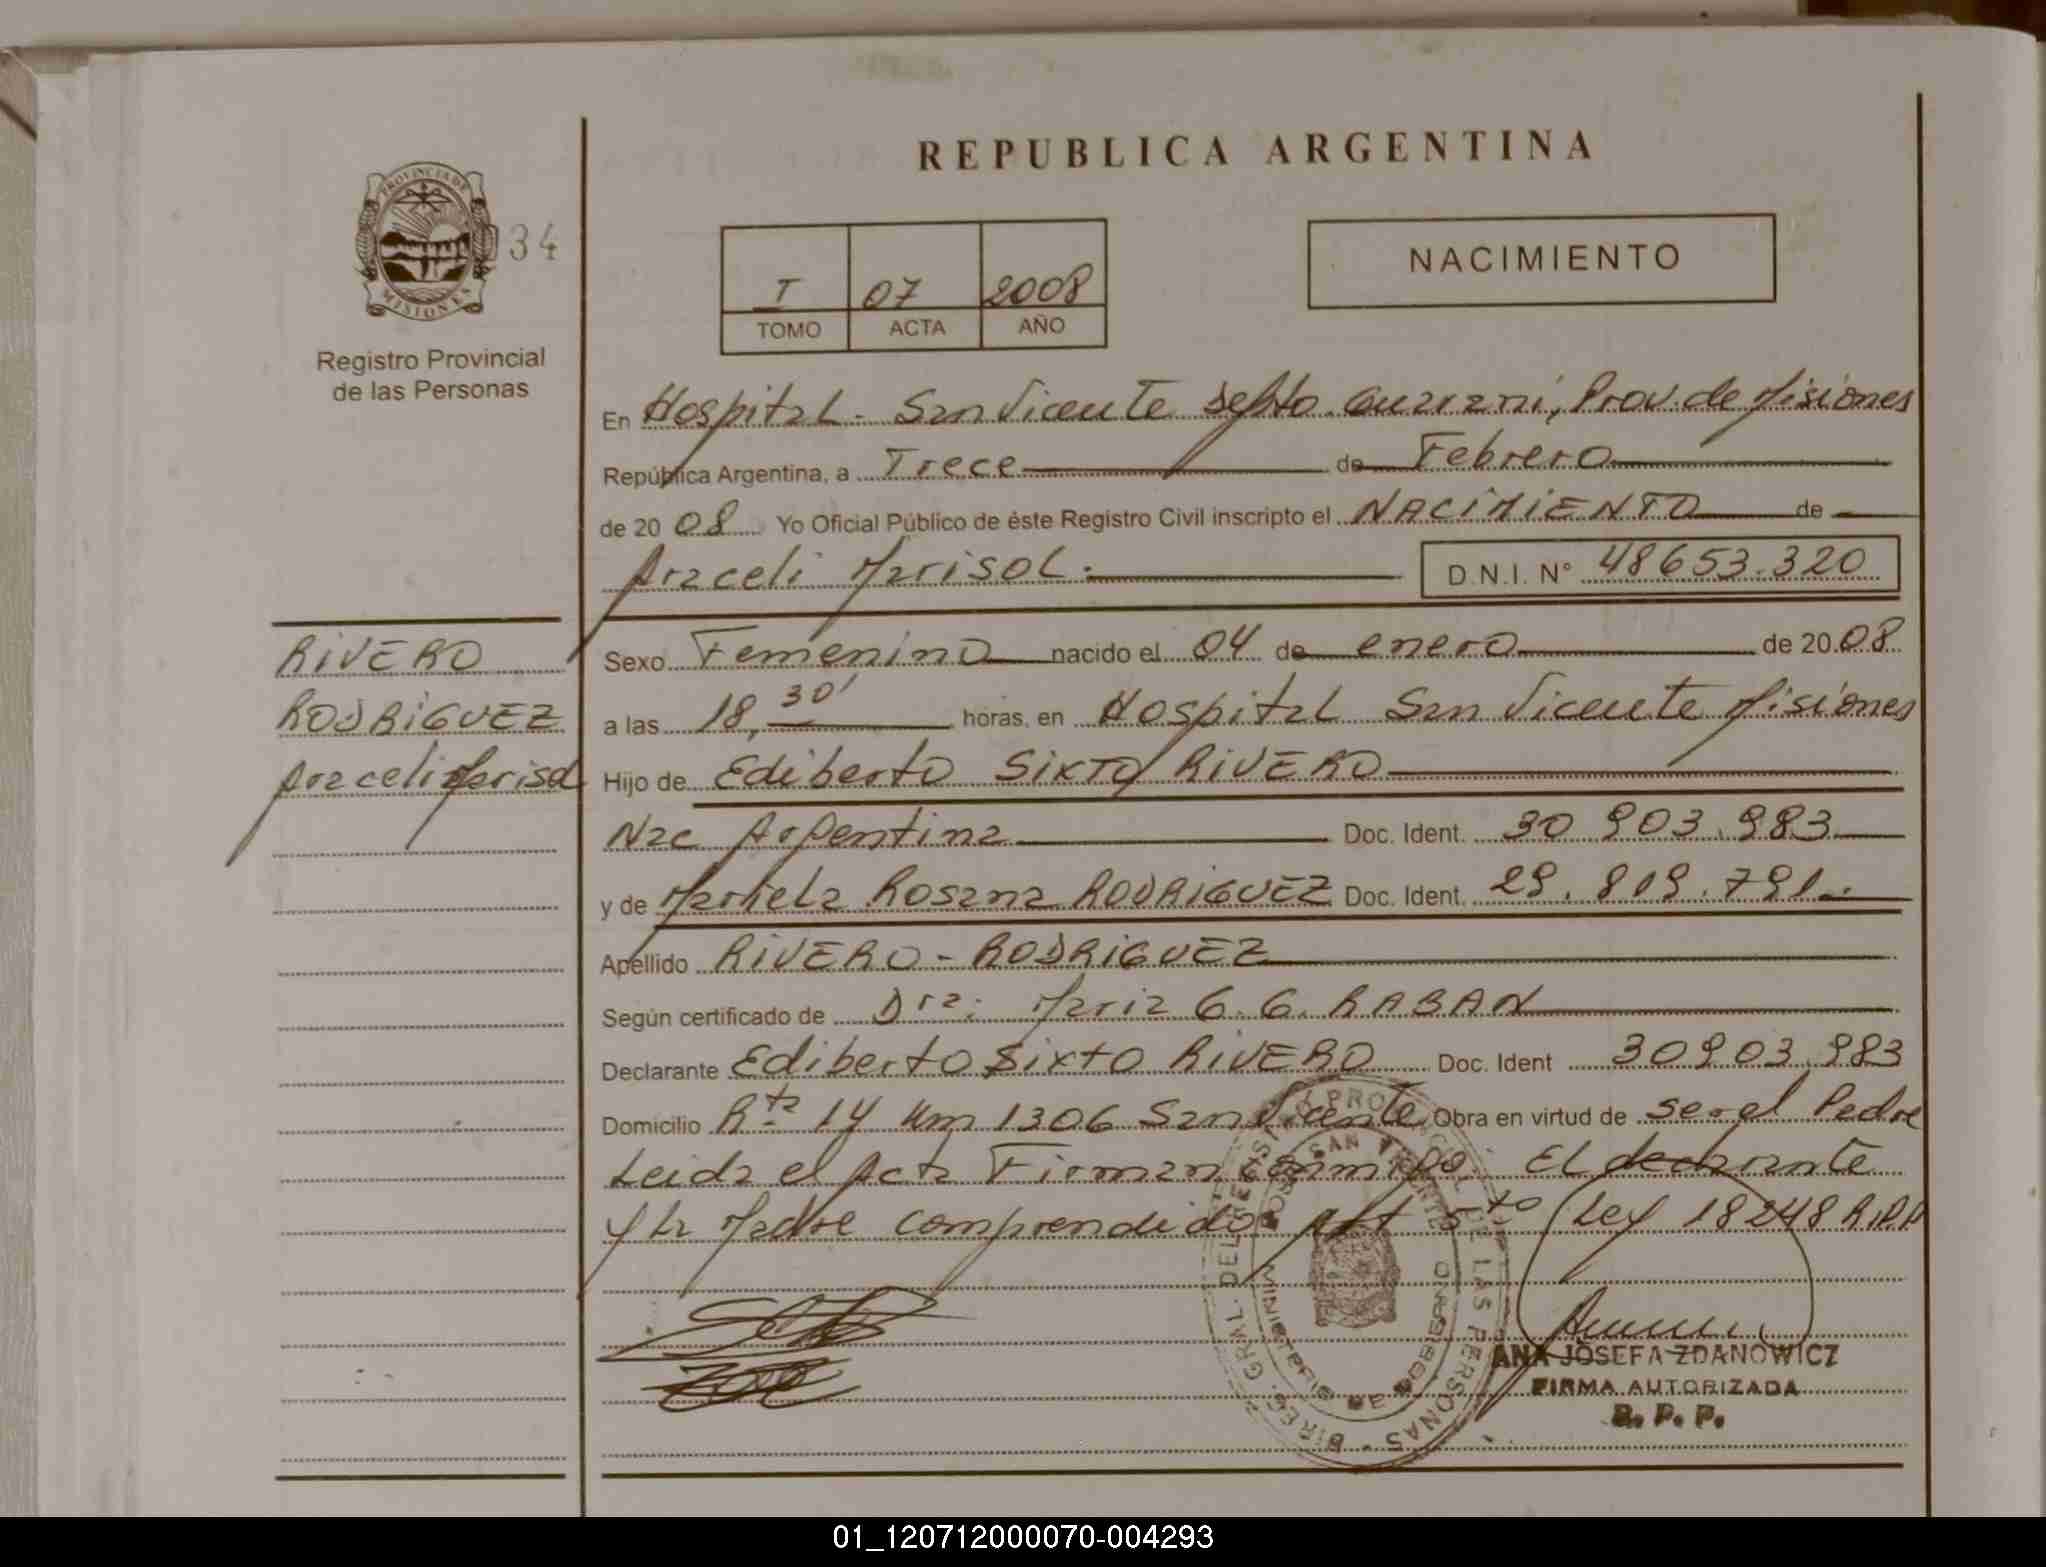 REPUBLICA ARGENTINA
PROVINCIA DE MISIONES
34
Registro Provincial
de las Personas
I 07 2008
TOMO ACTA AÑO
NACIMIENTO
En Hospital - San Vicente Depto. Guarani, Prov. de Misiones
República Argentina, a Trece de Febrero
de 20 08 Yo Oficial Público de éste Registro Civil inscripto el NACIMIENTO de
Araceli Marisol.
D.N.I. N° 48653.320
RIVERO
RODRIGUEZ
Araceli Marisol
Sexo Femenino nacido el 04 de enero de 20 08
a las 18,30' horas, en Hospital San Vicente Misiones
Hijo de Ediberto Sixto RIVERO
Nac Argentina Doc. Ident. 30 903.983
y de Mariela Rosana RODRIGUEZ Doc. Ident. 29.819.791.
Apellido RIVERO - RODRIGUEZ
Según certificado de Dra: Maria G. G. RABAN
Declarante Ediberto Sixto RIVERO Doc. Ident 30903.983
Domicilio Rta 14 Km 1306 San Vicente Obra en virtud de ser el Padre
Leida el Acta Firman conmigo. El declarante
y la Madre comprendido Art 5to Ley 18248 R.P.P
DIREC. GRAL. DEL REGISTRO PROVINCIAL DE LAS PERSONAS
SAN VICENTE
MINISTERIO DE GOBIERNO
ANA JOSEFA ZDANOWICZ
FIRMA AUTORIZADA
R. P. P.
01_120712000070-004293